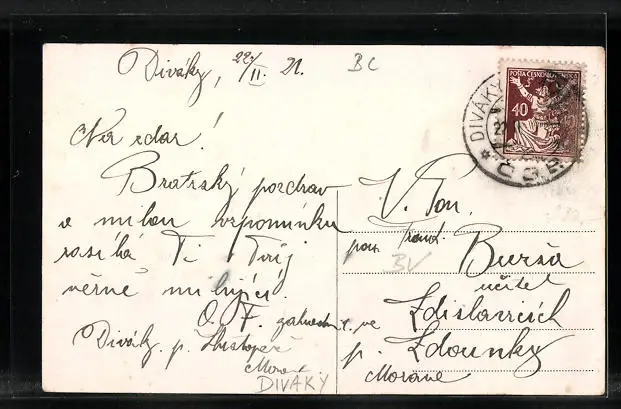 Diváky, 22/II. 21.
BC
POŠTA ČESKOSLOVENSKÁ
40
DIVÁKY
Č.S.R.
Na zdar!
Bratrský pozdrav
a milou vzpomínku
zasílá Ti Tvůj
věrně milující
O. F.
Diváky. p.
Morava
DIVÁKY
V. Pan.
pan
Burša
BV
učitel
ve
Zdislavicích
p. Zdounky
Morava